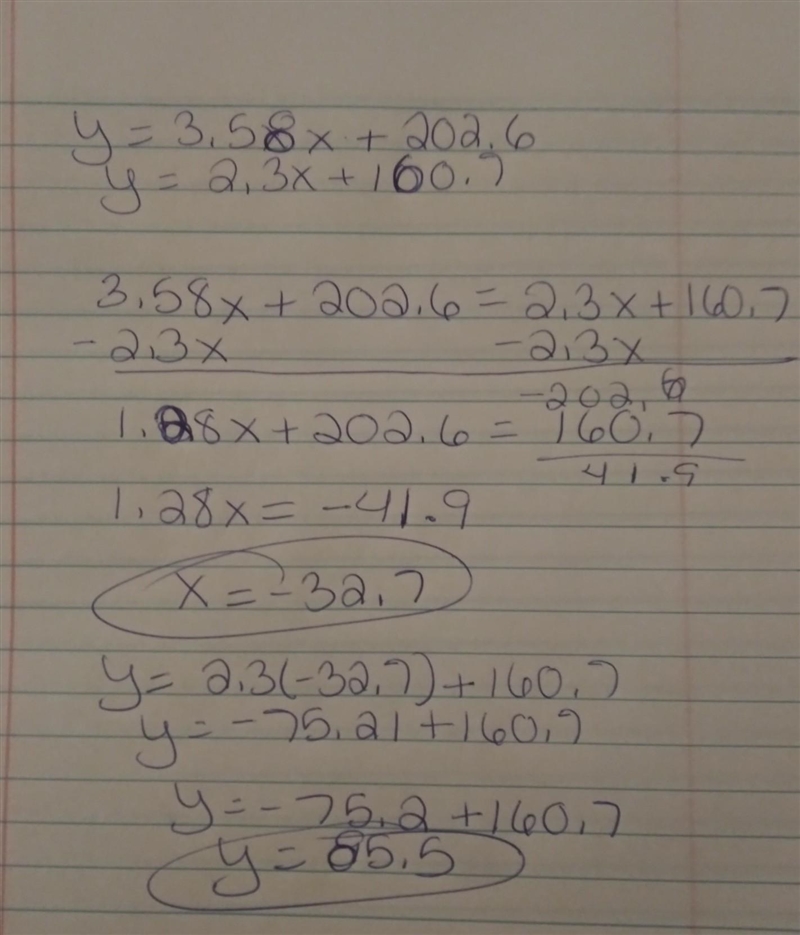 y = 3.58x + 202.6
y = 2.3x + 160.7
3.58x + 202.6 = 2.3x + 160.7
-2.3x -2.3x
-202.6
1.28x + 202.6 = 160.7
41.9
1.28x = -41.9
x = -32.7
y = 2.3(-32.7) + 160.7
y = -75.21 + 160.7
y = -75.2 + 160.7
y = 85.5